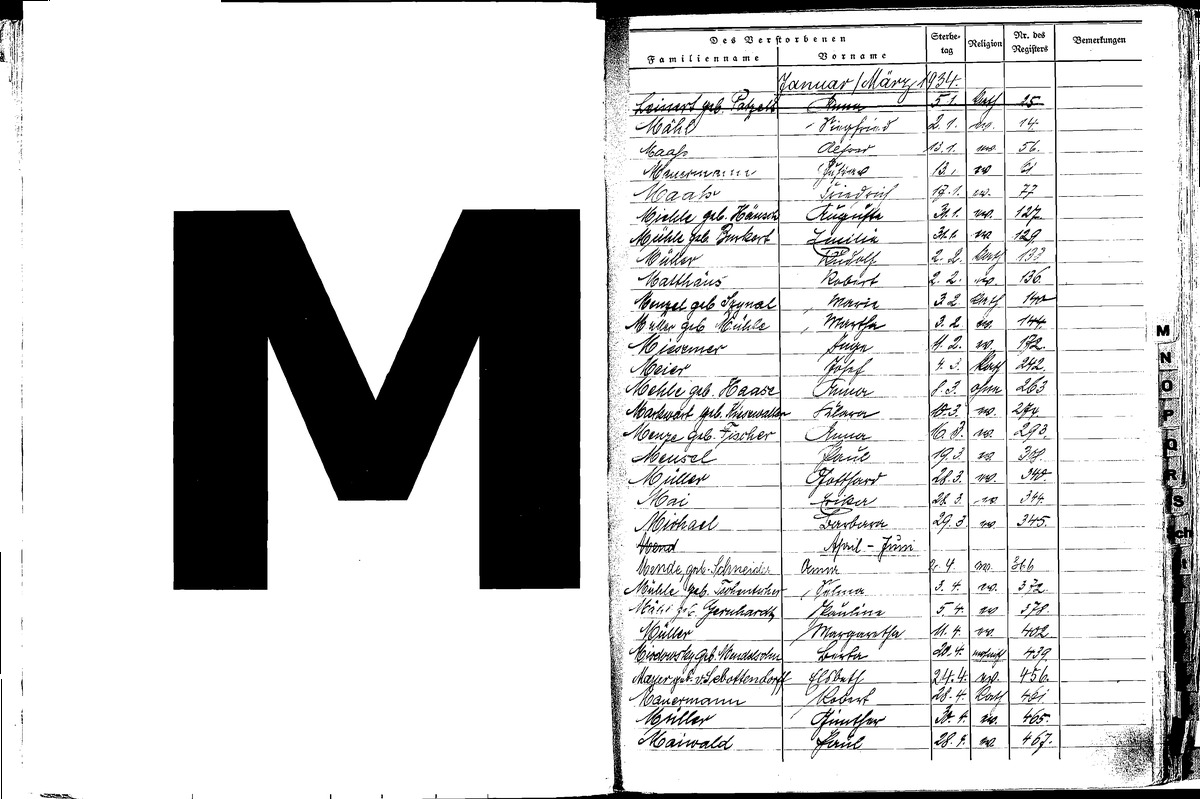 M
Des Verstorbenen
Familienname Vorname Sterbe-tag Religion Nr. des Registers Bemerkungen
Januar/März 1934.
Leinert geb. Patzelt Anna 5.1. Kath 25
Mähl Siegfried 2.1. ev. 14.
Maaß Alfred 13.1. ev. 56.
Mauermann Gustav 13.1 ev 61
Maahs Friedrich 17.1. ev. 77
Miehle geb. Hänsch Auguste 31.1. ev. 127.
Mühle geb. Burkert Emilie 31.1. ev 129.
Müller Rudolf 2.2. Kath 133
Matthäus Robert 2.2. ev. 136.
Menzel geb Marie 3.2 Kath 140
geb Mühle Martha 3.2 ev. 144.
Missemer Inge 11.2. ev. 172.
Meier Josef 4.3. Kath 242.
Mehle geb. Haase Anna 8.3. ohne 263
Markwart geb. Klara 10.3. ev. 274.
Menze geb. Fischer Anna 16.3. ev. 293.
Mensel Paul 19.3. ev 309.
Müller Gotthard 28.3. ev. 340.
Mai Erika 28.3. ev 344.
Michael Barbara 29.3 ev 345.
Mend April - Juni
Mende, geb. Schneider Anna 2.4. ev. 366
Mühle geb. Selma 3.4. ev. 372.
geb. Gernhardt Pauline 5.4. ev 378.
Müller Margaretha 11.4. ev. 402.
geb. Mendelsohn Berta 20.4. mosaisch 439
Mayer geb. v. Sebottendorff Elsbeth 24.4. ev. 456.
Mauermann Robert 28.4. Kath 461.
Müller Günther 30.4. ev. 465.
Maiwald Paul 28.4. ev. 467.
M
N
O
P
Q
R
S
Sch
t